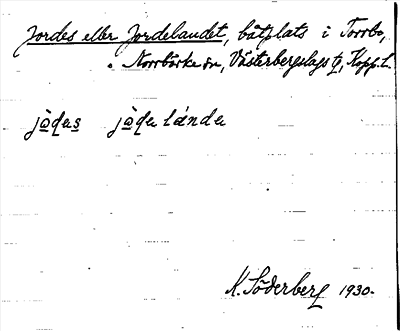 Jordes eller Jordelandet, båtplats i Torrbo,
i Norrbärke sn, Västerbergslags tg, Kopp. L.
jo̱de̱s jo̱de lánde
K. Söderberg 1930.